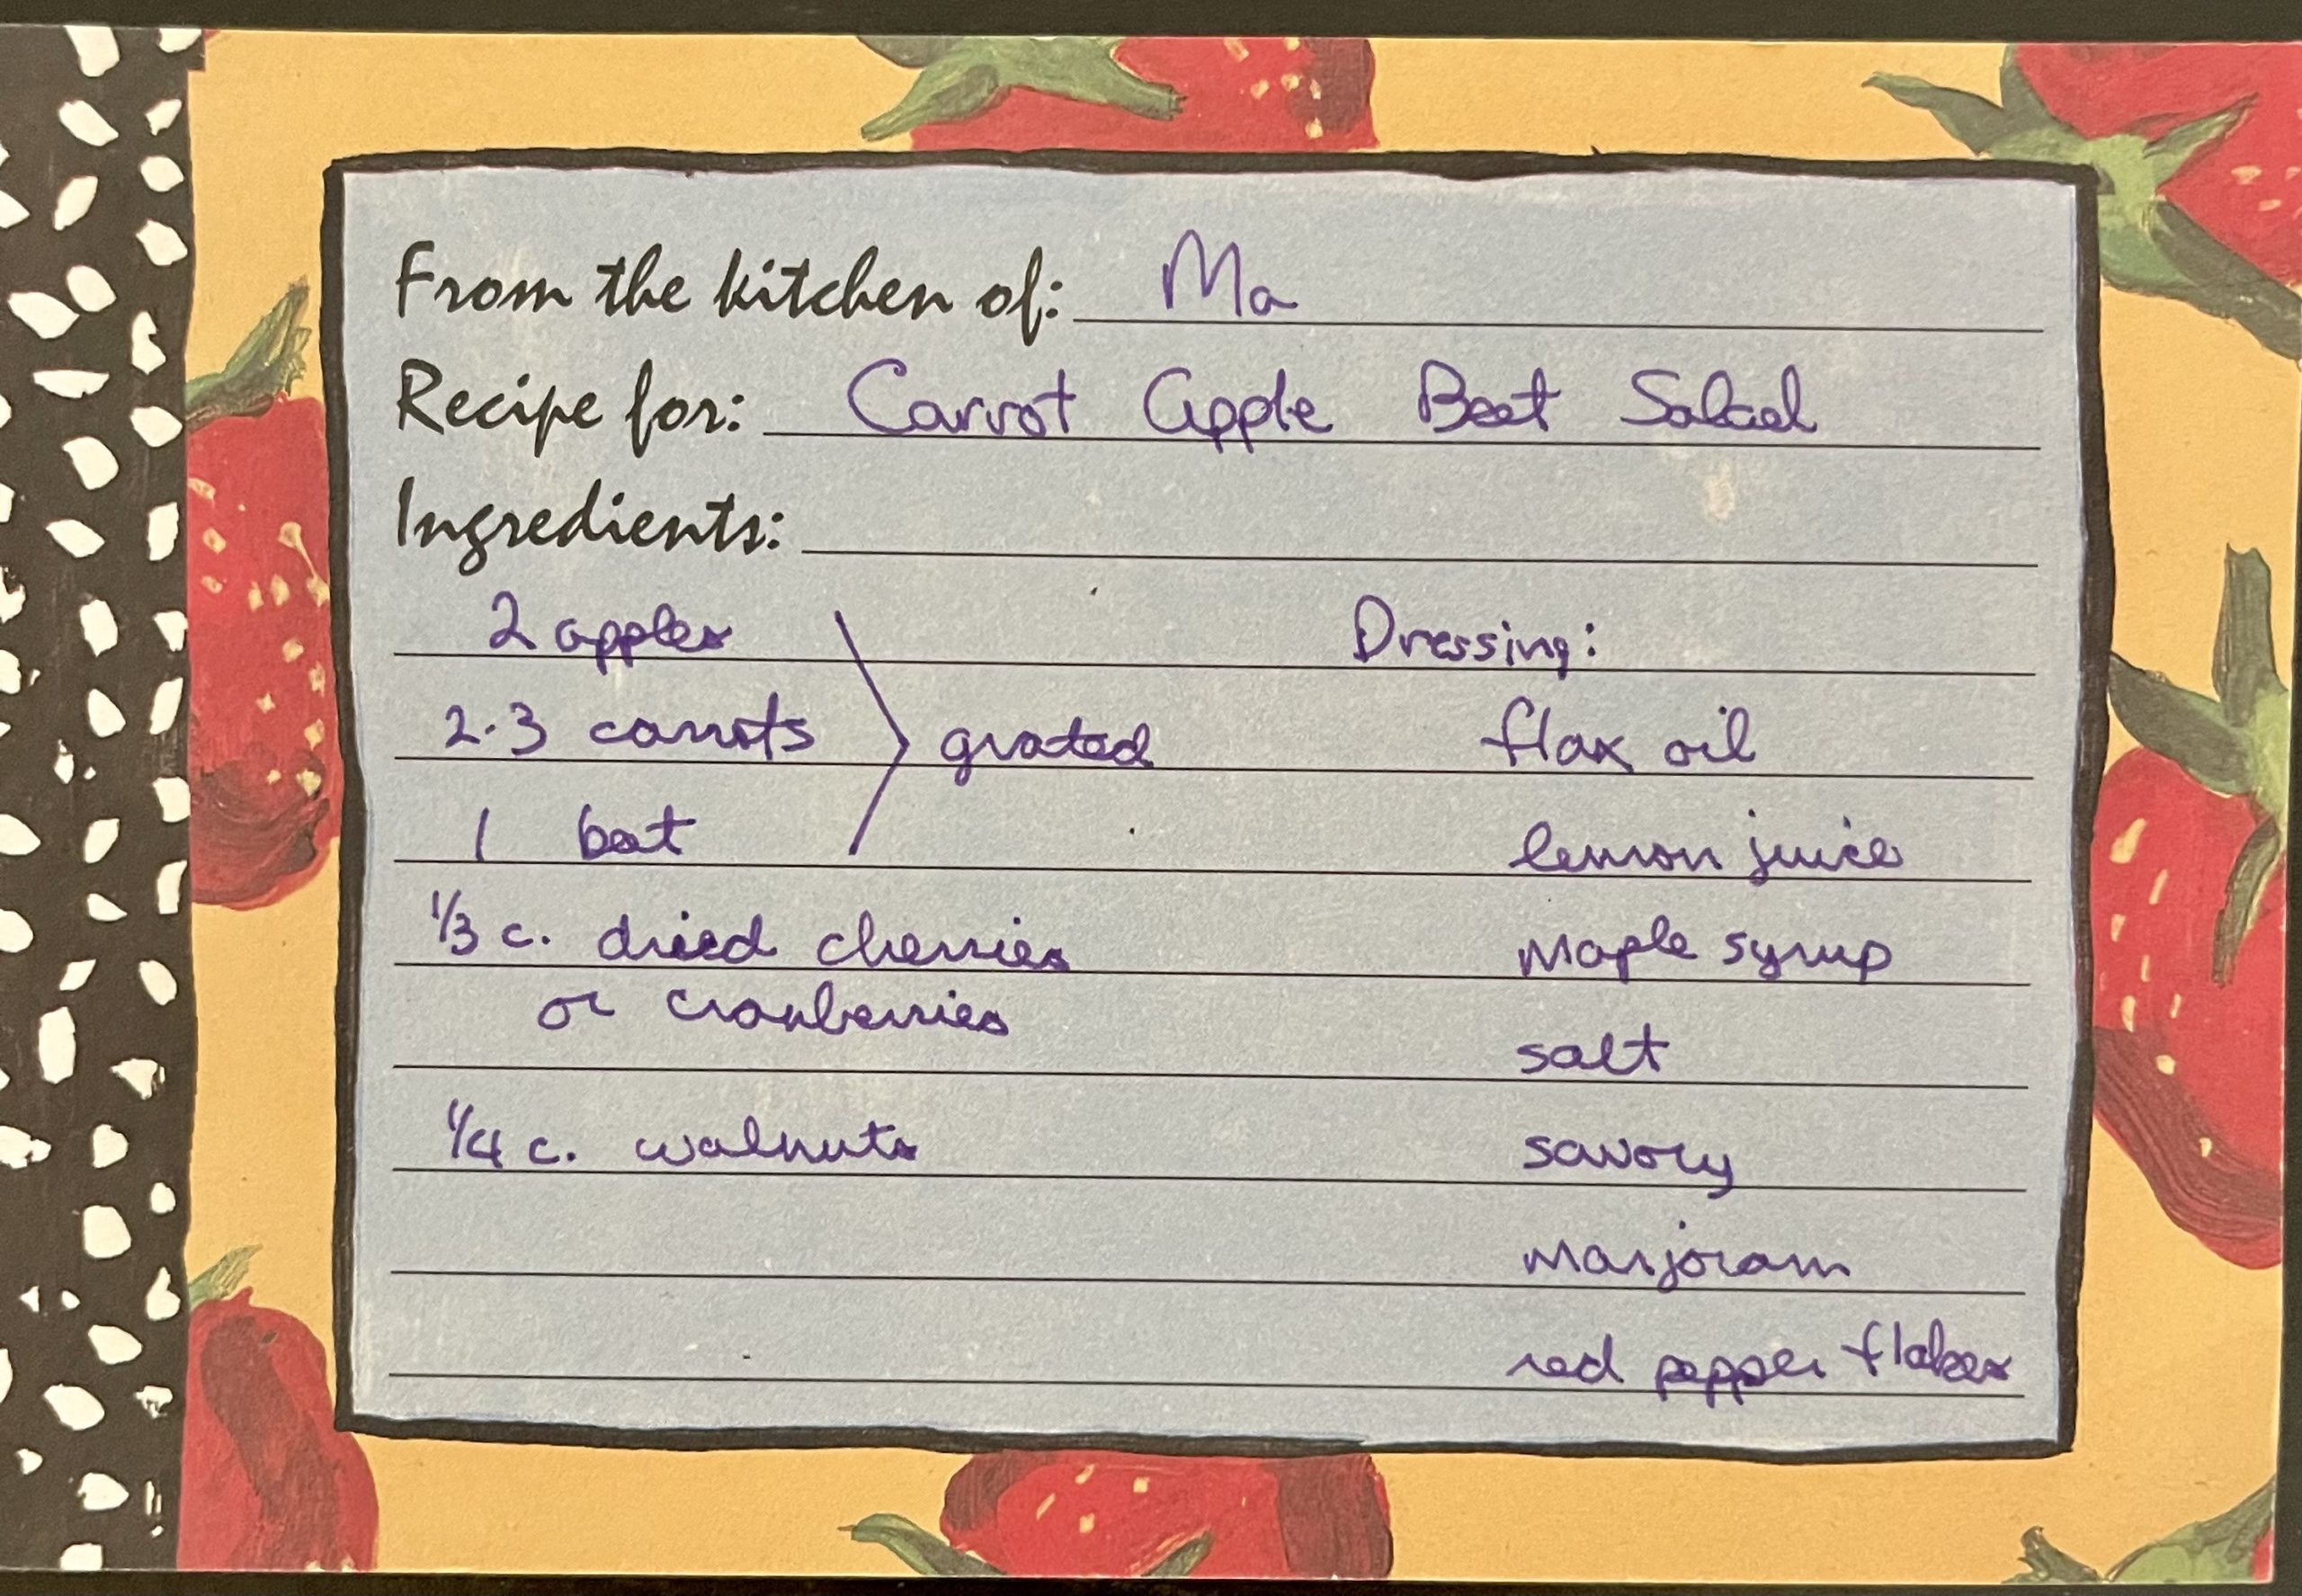 From the kitchen of: Ma
Recipe for: Carrot Apple Beet Salad
Ingredients:
2 apples
2-3 carrots
1 beet
grated
1/3 c. dried cherries
or cranberries
1/4 c. walnuts
Dressing:
flax oil
lemon juice
maple syrup
salt
savory
marjoram
red pepper flakes